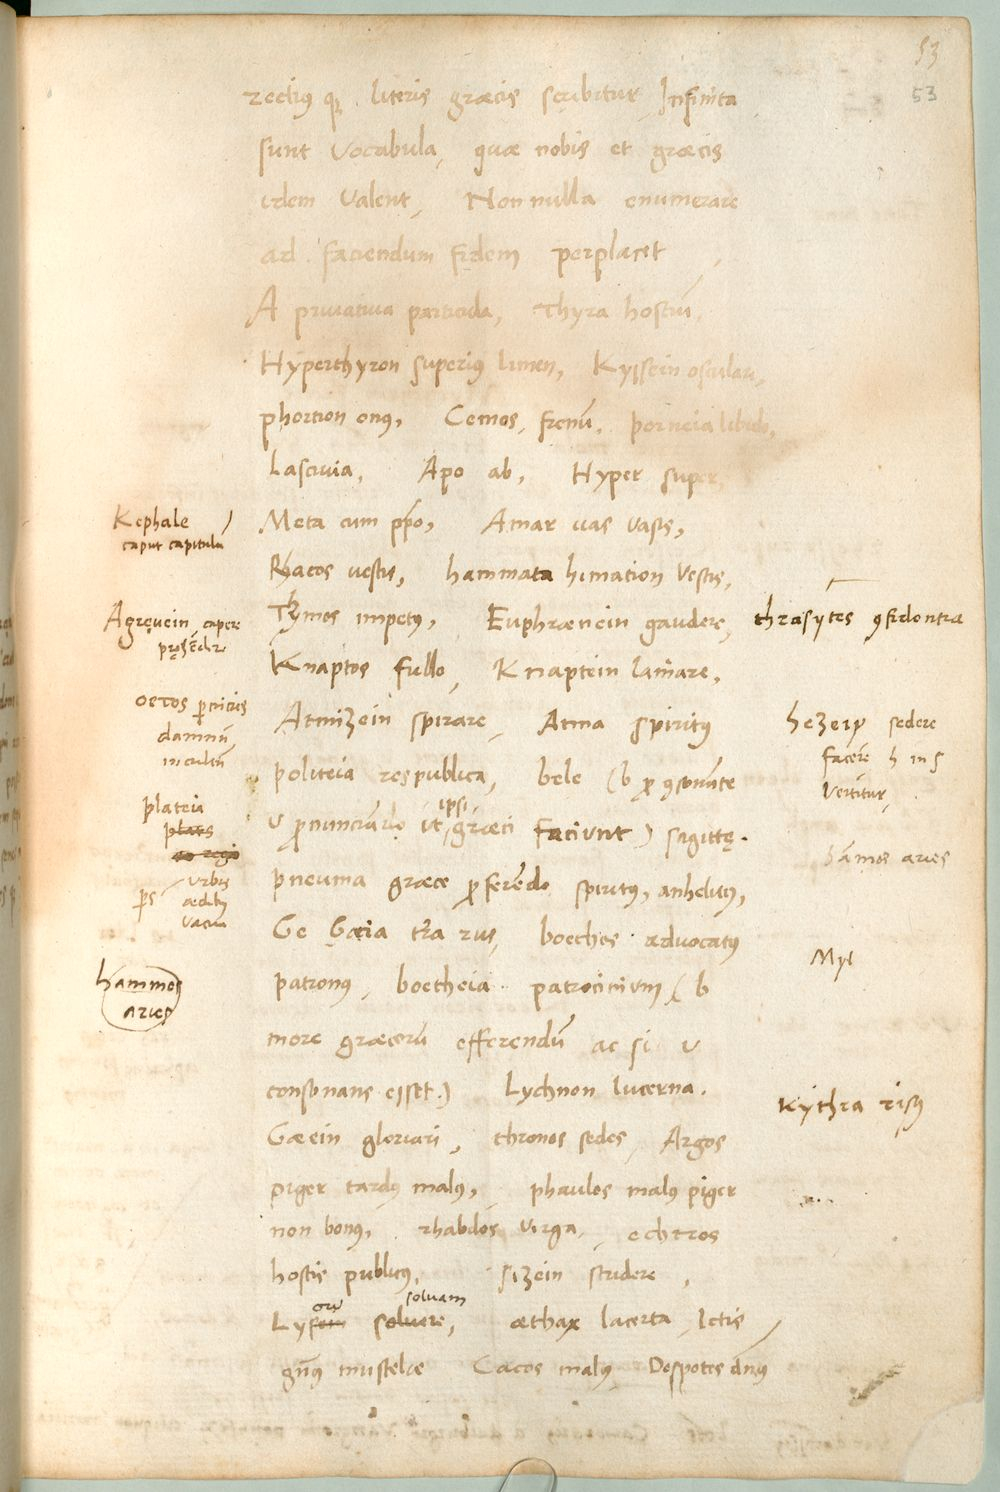 53
53
rectius qz literis græcis scribitur Infinita
sunt Vocabula, quæ nobis et græcis
idem Valent, Non nulla enumerare
ad faciendum fidem perplacet
A priuatiua particula, Thyra hostiū,
Hyperthyron superius limen, Kyssein osculari,
phortion onus, Cemos, frenū, porneia libido,
Lasciuia, Apo ab, Hyper super,
Meta cum Amar uas vasis,
Rhacos uestis, hammata himation Vestis,
Thymos impetus, Euphrænein gaudere,
Knaptos fullo, Knaptein laniare,
Atmizein spirare, Atma spiritus
politeia respublica, bele (b ꝓ ꝯsonāte
v ꝓnunciādo ut ipsi græci faciunt) sagittę.
pneuma græce ꝓferēdo spiritus, anhelitus,
Ge Gæia tr̄a rus, boethos aduocatus
patronus, boetheia patrocinium (b
more græcorū efferendū ac si v
consonans esset.) Lychnon lucerna.
Gæein gloriari, thronos sedes, Argos
piger tardus malus, phaulos malus piger
non bonus, rhabdos virga, echtros
hostis publicus, sizein stridere,
solvam
Lys soluere, æthax lacerta, Ictis
gn̄us mustelæ Cacos malus, Despotes dn̄us
Kephale
caput capitulū
Agreuein capere
oetos ꝑnicies
damnū
plateia
plates
urbis
hammos
aries
thrasytes ꝯfidentia
hezein sedere
facere h in s
vertitur,
hāmos aries
Myl
Kythra risus